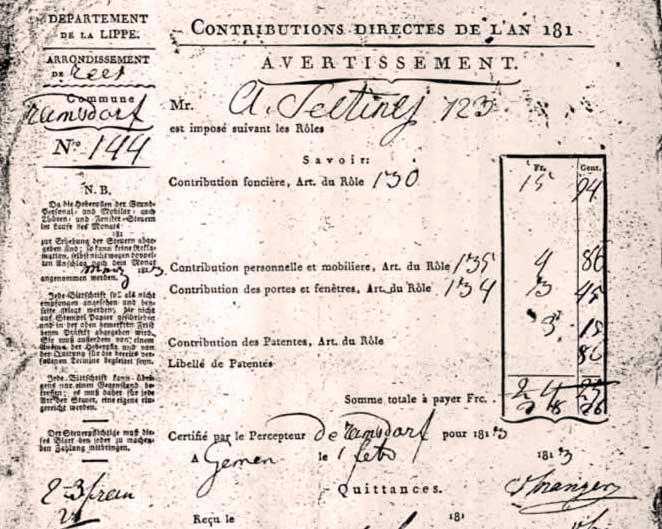 DÉPARTEMENT
DE LA LIPPE.
ARRONDISSEMENT
DE Rees
Commune
Ramsdorf
N.° 144
N. B.
Da die Heberollen der Grund-
Personal- und Mobilar- auch
Thüren- und Fenster-Steuern
im Laufe des Monats
181
zur Erhebung der Steuern abge-
geben sind; so kann keine Rekla-
mation, selbst nicht wegen doppel-
ten Anschlag nach dem Monat
März 1813
angenommen werden.
Jede Bittschrift soll als nicht
empfangen angesehen und bey-
seite gelegt werden, die nicht
auf Stempel Papier geschrieben
und in der oben bemerkten Frist
beym Präfekt abgegeben wird.
Sie muß außerdem von einem
Auszug der Heberolle und von
der Quitung für die bereits ver-
fallenen Termine begleitet seyn.
Jede Bittschrift kann übri-
gens nur einen Gegenstand be-
treffen; es muß daher für jede
Art der Steuer, eine eigene ein-
gereicht werden.
Der Steuerpflichtige muß die-
ses Blatt bey jeder zu machen-
den Zahlung mitbringen.
CONTRIBUTIONS DIRECTES DE L'AN 181
AVERTISSEMENT.
Mr. A. 123
est imposé suivant les Rôles
Savoir:
Fr. Cent.
Contribution foncière, Art. du Rôle 130 15 94
Contribution personelle et mobiliere, Art. du Rôle 135 4 86
Contribution des portes et fenêtres, Art. du Rôle 134 3 45
3 15
Contribution des Patentes, Art. du Rôle
Libellé de Patentes 86
Somme totale à payer Frc.
Certifié par le Percepteur de Ramsdorf pour 1813
A Gemen le 1 feb 1813
Quittances.
Reçu le 181